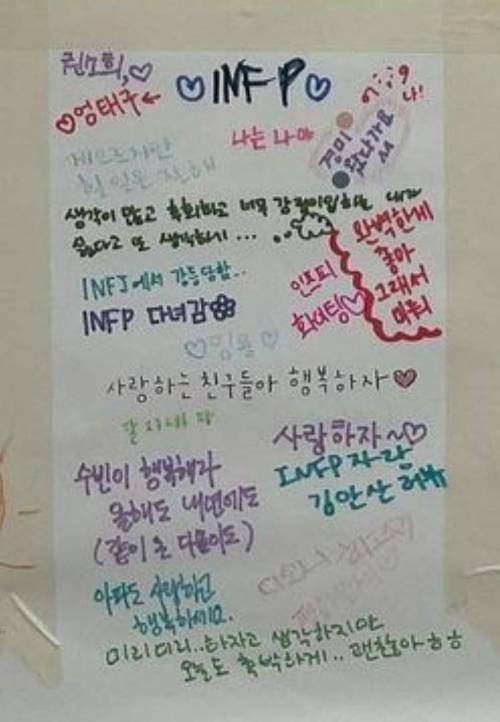 ♡INFP♡
♡엄태구←
나는 나야
나!
게으르지만
할 일은 잘해
경미
왔다가요
생각이 많고 후회하고 너무 감정이입하는 내가
싫다고 또 생각하기...
완벽한게
좋아
그래서
미뤄
INFJ에서 강등당함..
INFP 다녀감
인프피
화이팅♡
사랑하는 친구들아 행복하자♡
사랑하자~♡
INFP 자랑
김안산
수빈이 행복해라
올해도 내년에도
(같이 온 다움이도)
아파도 사랑하고
행복하세요.
미리미리..하자고 생각하지만
오늘도 촉박하게.. 괜찮아ㅎㅎ